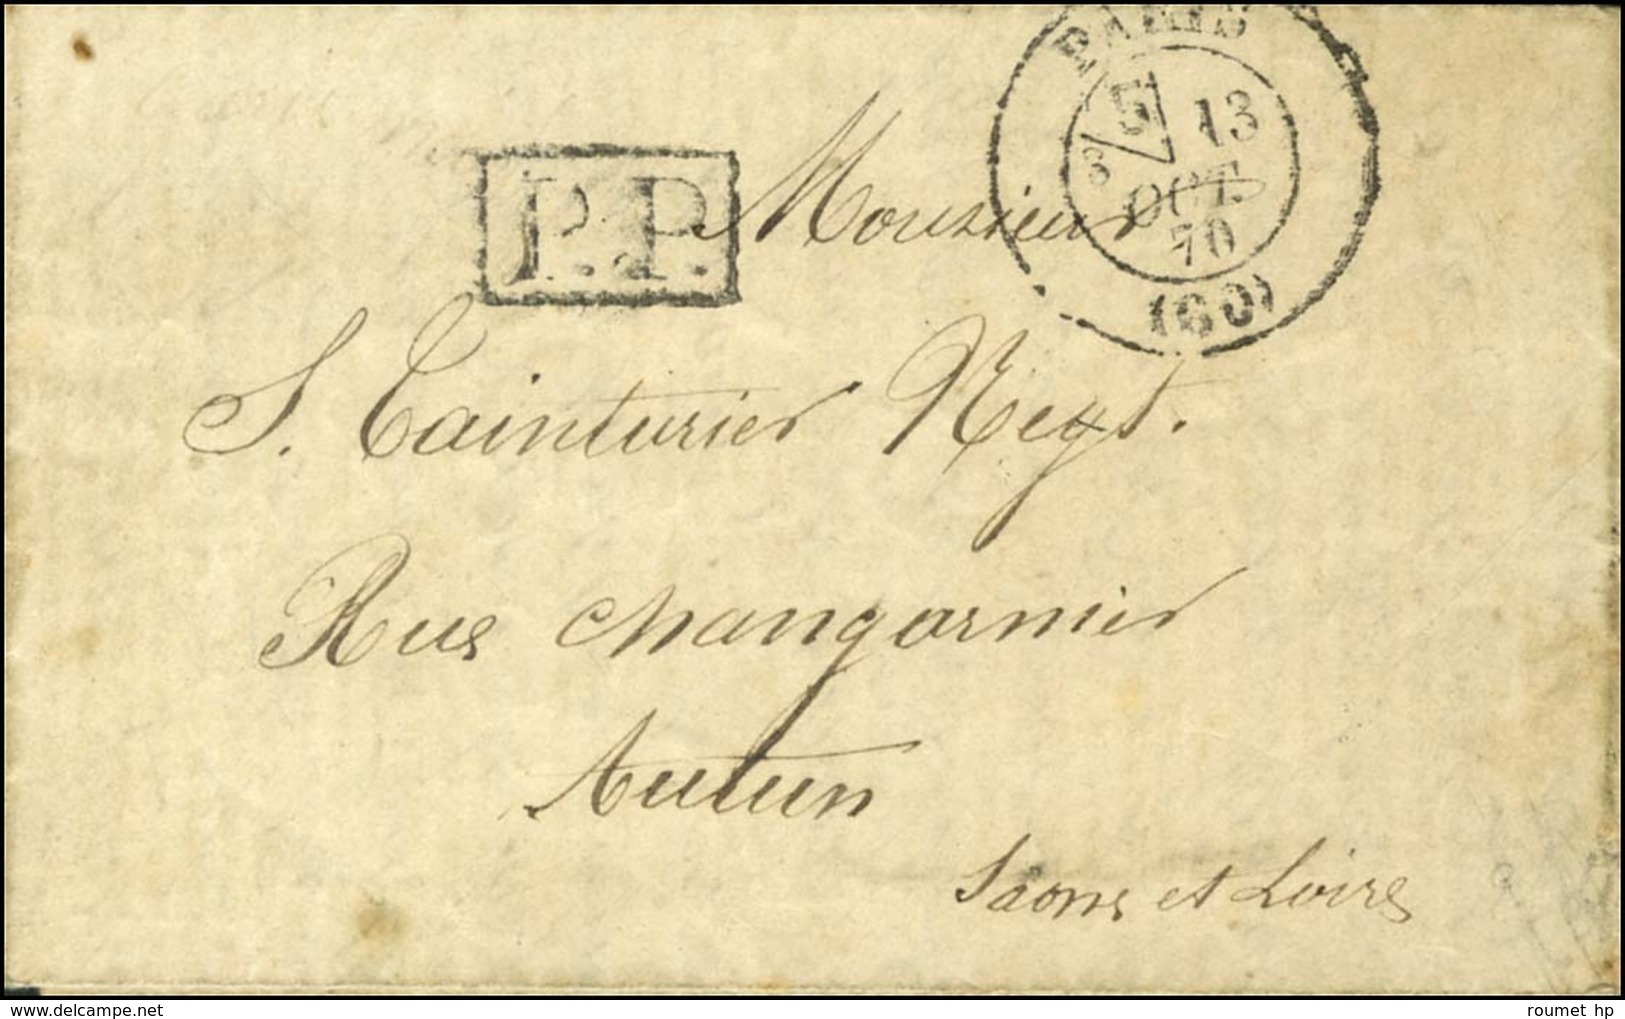 PARIS
5 13
3 OCT.
70
(60)
P.P.
Monsieur
S. Tainturier Negt.
Rue changarnier
Autun
Saone et Loire
roumet hp